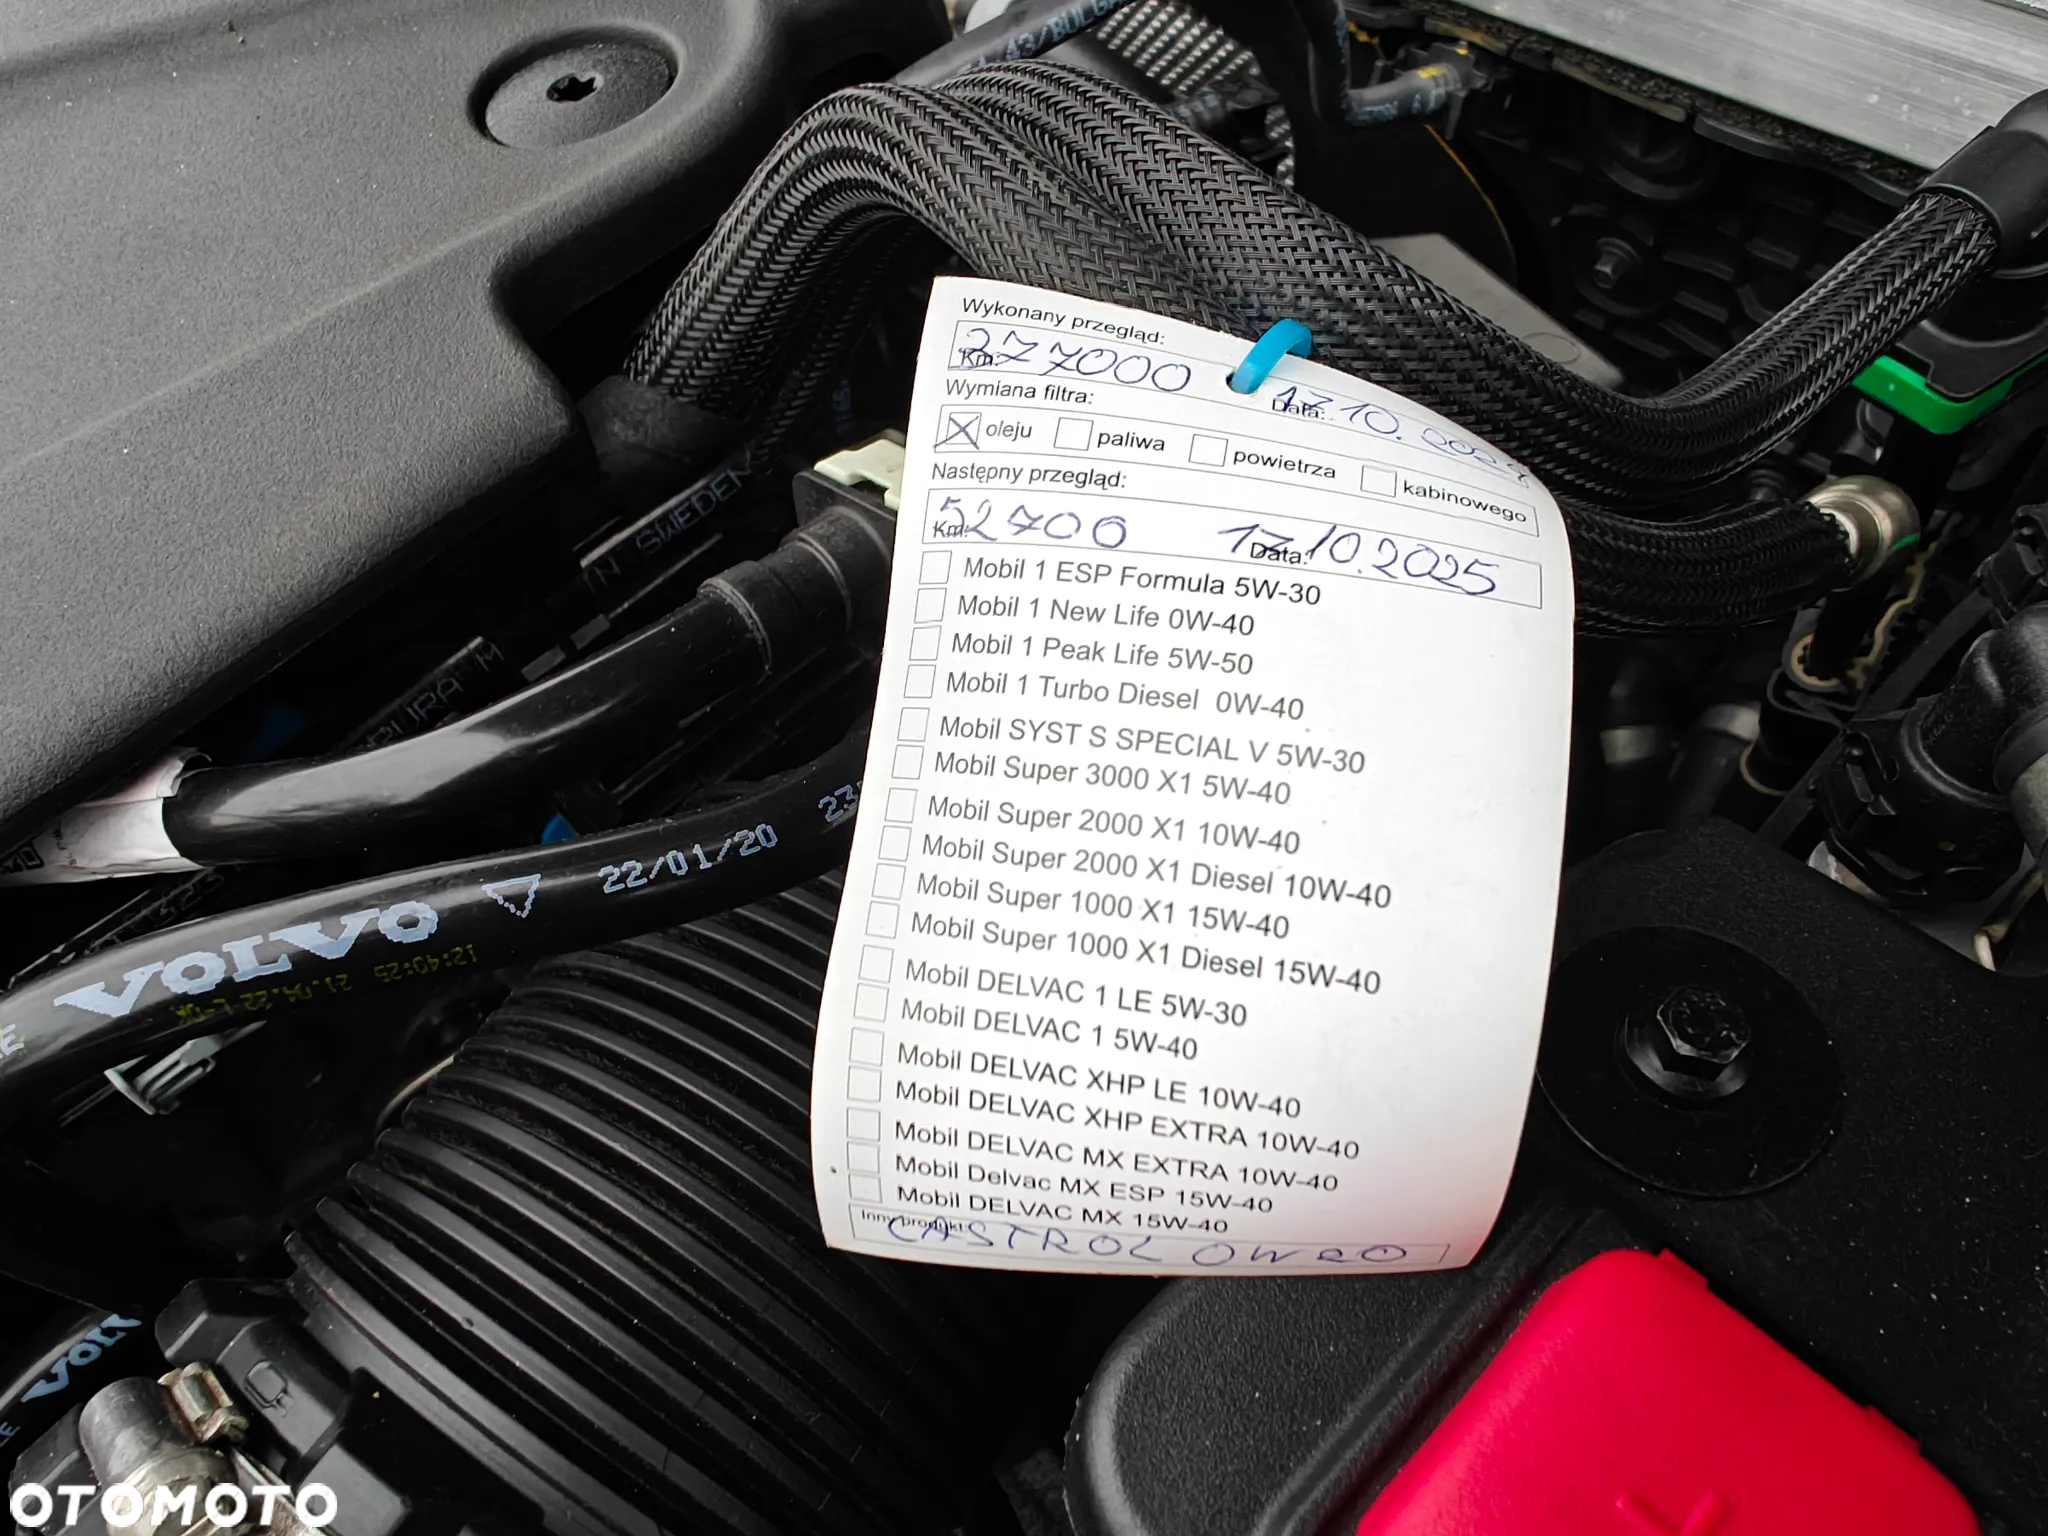 43/BOLGA
Wykonany przegląd:
Km: 277000 Data: 17.10.2024
Wymiana filtra:
oleju paliwa powietrza kabinowego
Następny przegląd:
Km: 52700 Data: 17.10.2025
Mobil 1 ESP Formula 5W-30
Mobil 1 New Life 0W-40
Mobil 1 Peak Life 5W-50
Mobil 1 Turbo Diesel 0W-40
Mobil SYST S SPECIAL V 5W-30
Mobil Super 3000 X1 5W-40
Mobil Super 2000 X1 10W-40
Mobil Super 2000 X1 Diesel 10W-40
Mobil Super 1000 X1 15W-40
Mobil Super 1000 X1 Diesel 15W-40
Mobil DELVAC 1 LE 5W-30
Mobil DELVAC 1 5W-40
Mobil DELVAC XHP LE 10W-40
Mobil DELVAC XHP EXTRA 10W-40
Mobil DELVAC MX EXTRA 10W-40
Mobil Delvac MX ESP 15W-40
Mobil DELVAC MX 15W-40
Inny produkt: CASTROL 0W20
IN SWEDEN
VOLVO 22/01/20 23
12:40:25 21.04.22
VOLV
OTOMOTO